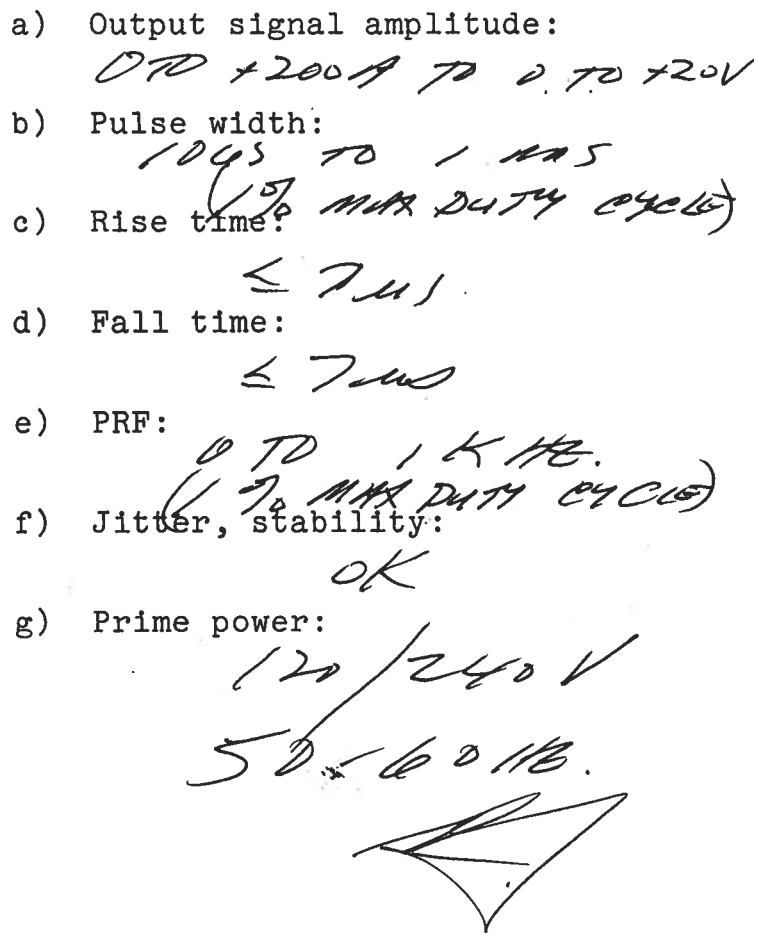 a) Output signal amplitude:
0 TO +200A TO 0 TO +20V
b) Pulse width:
10us TO 1 ms
(1% MAX DUTY CYCLE)
c) Rise time:
≤ 7us
d) Fall time:
≤ 7us
e) PRF:
0 TO 1 KHz.
(1% MAX DUTY CYCLE)
f) Jitter, stability:
OK
g) Prime power:
120/240V
50-60Hz.